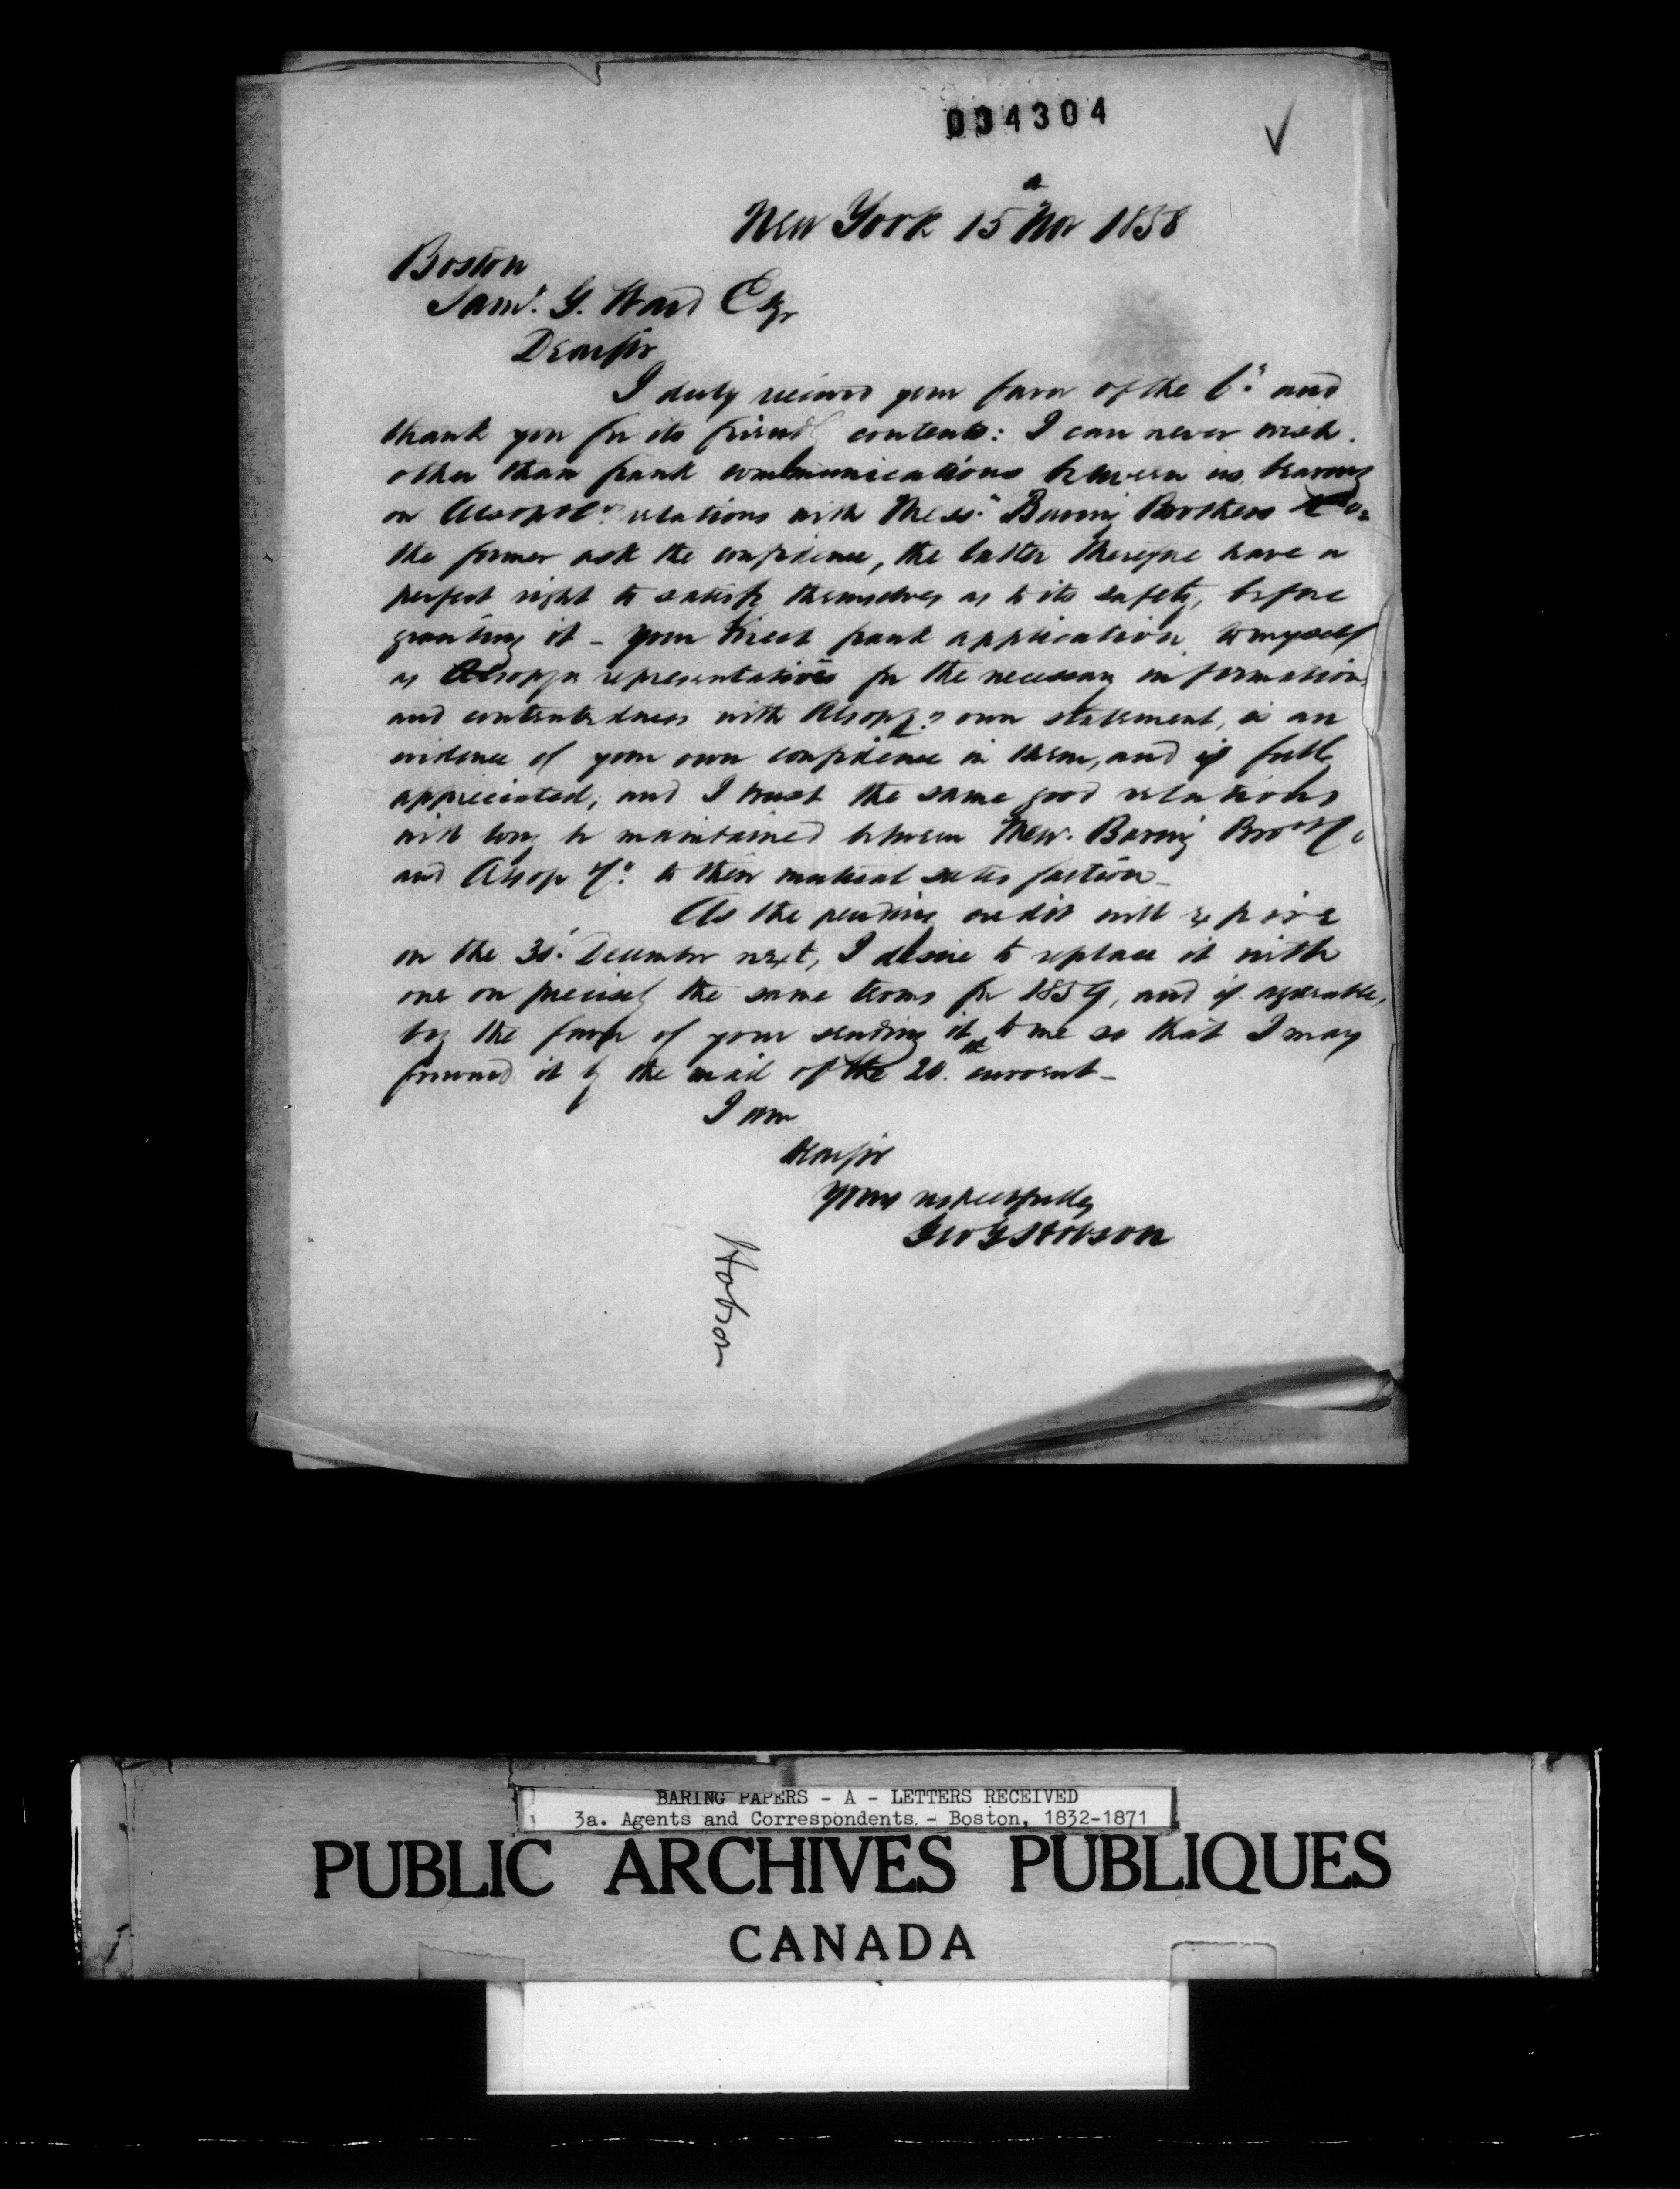 034304
New York 15 Nov 1858
Boston
Saml. G. Ward Esqr
Dear Sir
I duly received your favor of the 6th and
thank you for its friendly contents: I can never wish
other than frank communications between us, bearing
on Alsop & Co's relations with Messrs Baring Brothers & Co:
the former ask the confidence, the latter therefore have a
perfect right to satisfy themselves as to its safety, before
granting it - your direct frank application to myself
as Alsop's representative for the necessary information,
and contentedness with Alsop & Co's own statement, is an
evidence of your own confidence in them, and is fully
appreciated; and I trust the same good relations
will long be maintained between Messrs. Baring Bros & Co
and Alsop & Co: to their mutual satisfaction -
As the pending credit will expire
on the 31st December next, I desire to replace it with
one on precisely the same terms for 1859, and if agreeable,
beg the favor of your sending it to me so that I may
forward it by the mail of the 20th current -
I am
Dear Sir
Yours respectfully
Geo G Hobson
Hobson
BARING PAPERS - A - LETTERS RECEIVED
3a. Agents and Correspondents - Boston, 1832-1871
PUBLIC ARCHIVES PUBLIQUES
CANADA